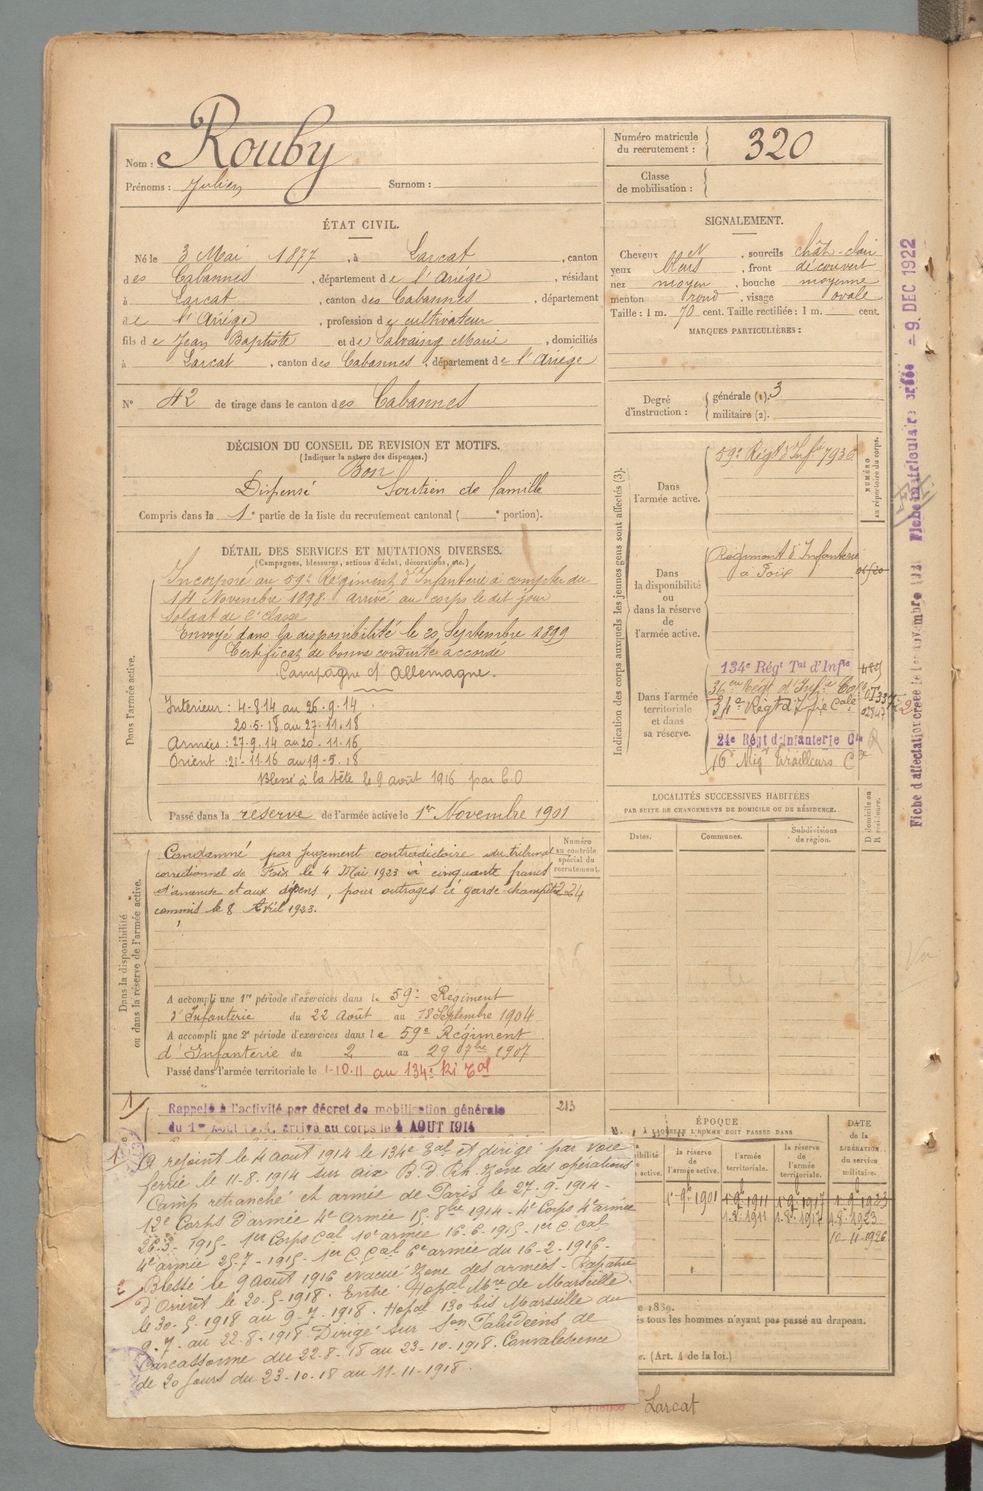 Nom : Rouby
Prénoms : Julien Surnom :
Numéro matricule du recrutement : 320
Classe de mobilisation :
ÉTAT CIVIL.
Né le 3 Mai 1877, à Larcat, canton
des Cabannes, département de l'Ariège, résidant
à Larcat, canton des Cabannes, département
de l'Ariège, profession de cultivateur
fils de Jean Baptiste et de Salvaing Marie, domiciliés
à Larcat, canton des Cabannes, département de l'Ariège
N° 42 de tirage dans le canton des Cabannes
SIGNALEMENT.
Cheveux N, sourcils chât-clair
yeux bleus, front découvert
nez moyen, bouche moyenne
menton rond, visage ovale
Taille : 1 m. 70 cent. Taille rectifiée : 1 m. cent.
MARQUES PARTICULIÈRES :
Degré d'instruction : générale (1). 3
militaire (2).
DÉCISION DU CONSEIL DE REVISION ET MOTIFS.
(Indiquer la nature des dispenses.)
Bon
Dispensé Soutien de famille
Compris dans la 1e partie de la liste du recrutement cantonal ( e portion).
DÉTAIL DES SERVICES ET MUTATIONS DIVERSES.
(Campagnes, blessures, actions d'éclat, décorations, etc.)
Dans l'armée active.
Incorporé au 59e Régiment d'Infanterie à compter du
14 Novembre 1898. arrivé au corps le dit jour
soldat de 2e classe
Envoyé dans la disponibilité le 20 Septembre 1899
Certificat de bonne conduite accordé
Campagne ct Allemagne.
Intérieur : 4-8-14 au 26-9-14
20.5.18 au 27-11-18
Armées : 27-9-14 au 20-11-16
Orient : 21-11-16 au 19-5-18
Blessé à la tête le 9 août 1916 par E.O
Passé dans la réserve de l'armée active le 1er Novembre 1901
Numéro au contrôle spécial du recrutement.
224
Dans la disponibilité ou dans la réserve de l'armée active.
Condamné par jugement contradictoire du tribunal
correctionnel de Foix le 4 Mai 1923 à cinquante francs
d'amende et aux dépens, pour outrages à garde-champêtre
commis le 8 Avril 1923.
A accompli une 1re période d'exercices dans le 59e Régiment
d'Infanterie du 22 Août au 18 Septembre 1904
A accompli une 2e période d'exercices dans le 59e Régiment
d'Infanterie du 2 au 29 7bre 1907
Passé dans l'armée territoriale le 1-10-11 au 134e Ri Tal
213
Rappelé à l'activité par décret de mobilisation générale
du 1er AOUT 1914, arrivé au corps le 4 AOUT 1914
A rejoint le 4 août 1914 le 134e Tal et dirigé par voie
ferrée le 11-8-1914 sur Aix B.d.Rh. Zone des opérations
Camp retranché et armée de Paris le 27-9-1914-
12e Corps d'armée 4e armée 15-8bre 1914- 4e Corps 4e armée
26-3-1915- 1er Corps Cal 10e armée 16-6-1915- 1er C. Cal
4e armée 25-7-1915 1er C. Cal 6e armée du 16-2-1916-
Blessé le 9 août 1916 evacué Zone des armées - Rapatrié
d'Orient le 20-5-1918. Entré Hopal Mre de Marseille
le 30-5-1918 au 9-7-1918. Hopal 130 bis Marseille du
9-7- au 22-8-1918 Dirigé sur Son Paludéens de
Carcassonne du 22-8-18 au 23-10-1918. Convalescence
de 20 jours du 23-10-18 au 11-11-1918.
Indication des corps auxquels les jeunes gens sont affectés (3).
NUMÉRO au répertoire du corps.
Dans l'armée active.
59e Régt d'Infie 7936
Dans la disponibilité ou dans la réserve de l'armée active.
Régiment d'Infanterie
à Foix
Dans l'armée territoriale et dans sa réserve.
134e Régt Tal d'Infie
34e Régt d'Infie Cale
24e Régt d'Infanterie Cle
LOCALITÉS SUCCESSIVES HABITÉES
PAR SUITE DE CHANGEMENTS DE DOMICILE OU DE RÉSIDENCE.
Dates. Communes. Subdivisions de région.
D domicile ou R résidence.
ÉPOQUE
À LAQUELLE L'HOMME DOIT PASSER DANS
la réserve de l'armée active. l'armée territoriale. la réserve de l'armée territoriale.
DATE de la LIBÉRATION du service militaire.
1er 9bre 1901 1er 9bre 1911 1er 9bre 1917 1er 9bre 1923
1-8-1911 1-8-1917 1-8-1923
10-11-1926
e 1889.
és tous les hommes n'ayant pas passé au drapeau.
e. (Art. 4 de la loi.)
Larcat
Fiche d'affectation créée le
Fiche matriculaire créée = 9. DEC 1922